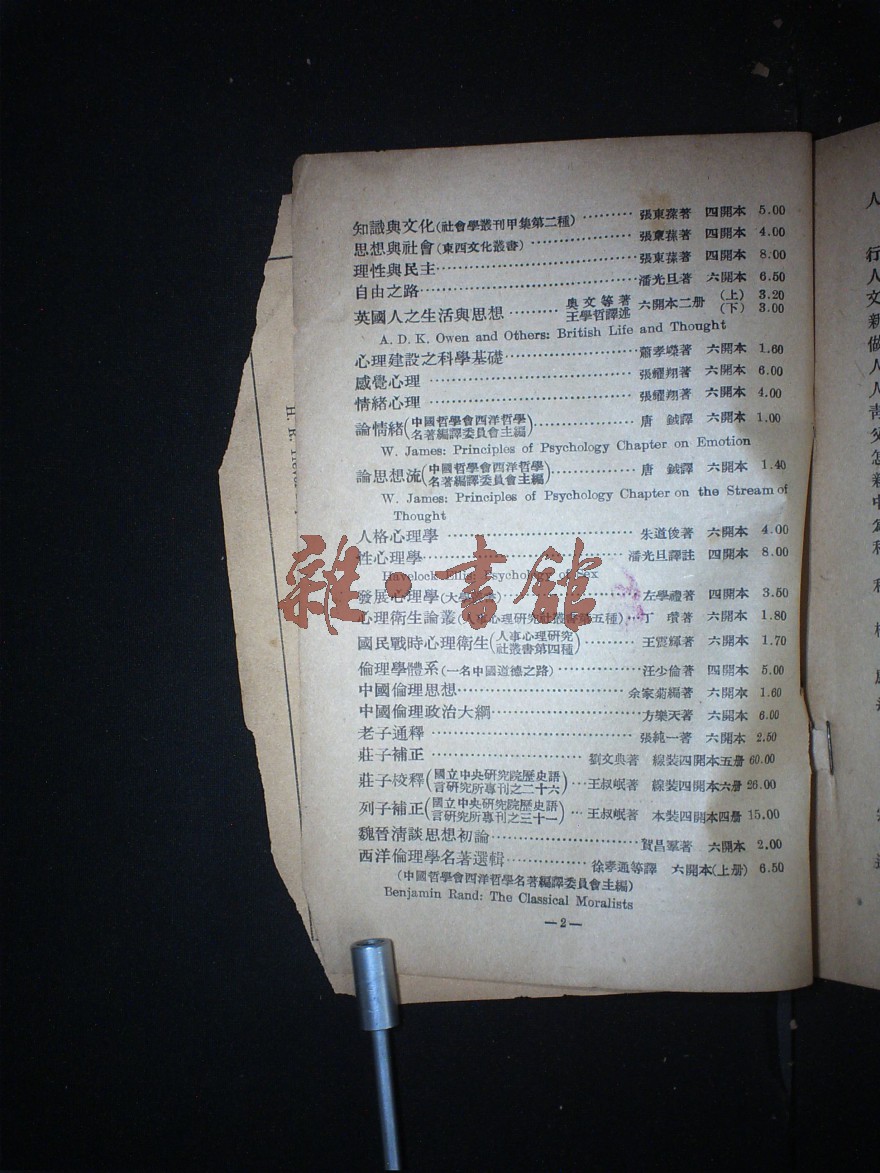 知識與文化(社會學叢刊甲集第二種)………張東蓀著 四開本 5.00
思想與社會(東西文化叢書)………張東蓀著 四開本 4.00
理性與民主………張東蓀著 四開本 8.00
自由之路………潘光旦著 六開本 6.50
英國人之生活與思想………奧文等著 王學哲譯述 六開本二册 (上) 3.20 (下) 3.00
A. D. K. Owen and Others: British Life and Thought
心理建設之科學基礎………蕭孝嶸著 六開本 1.60
感覺心理………張耀翔著 六開本 6.00
情緒心理………張耀翔著 六開本 4.00
論情緒(中國哲學會西洋哲學名著編譯委員會主編)………唐 鉞譯 六開本 1.00
W. James: Principles of Psychology Chapter on Emotion
論思想流(中國哲學會西洋哲學名著編譯委員會主編)………唐 鉞譯 六開本 1.40
W. James: Principles of Psychology Chapter on the Stream of
Thought
人格心理學………朱道俊著 六開本 4.00
性心理學………潘光旦譯註 四開本 8.00
Havelock Ellis: Psychology of Sex
發展心理學(大學)………左學禮著 四開本 3.50
心理衛生論叢(人事心理研究社叢書第五種)…丁 瓚著 六開本 1.80
國民戰時心理衛生(人事心理研究社叢書第四種)………王震輝著 六開本 1.70
倫理學體系(一名中國道德之路)………汪少倫著 四開本 5.00
中國倫理思想………余家菊編著 六開本 1.60
中國倫理政治大綱………方樂天著 六開本 6.00
老子通釋………張純一著 六開本 2.50
莊子補正………劉文典著 線裝四開本五册 60.00
莊子校釋(國立中央研究院歷史語言研究所專刊之二十六)…王叔岷著 線裝四開本六册 26.00
列子補正(國立中央研究院歷史語言研究所專刊之三十一)…王叔岷著 本裝四開本四册 15.00
魏晉清談思想初論………賀昌羣著 六開本 2.00
西洋倫理學名著選輯………徐孝通等譯 六開本(上册) 6.50
(中國哲學會西洋哲學名著編譯委員會主編)
Benjamin Rand: The Classical Moralists
—2—
雜·書館